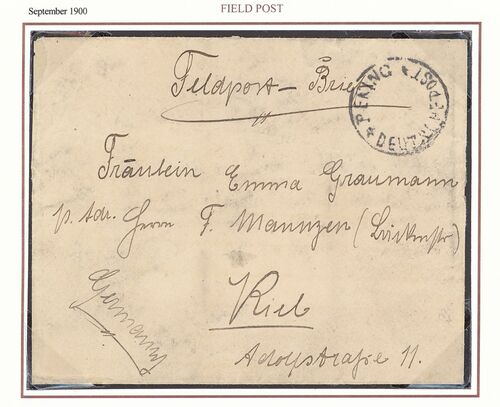 September 1900
FIELD POST
Feldpost - Brief
PEKING DEUTSCHE POST
Fräulein Emma Graumann
p. Adr. Herrn F. Mannzen
Kiel
Germany
Adolfstraße 11.